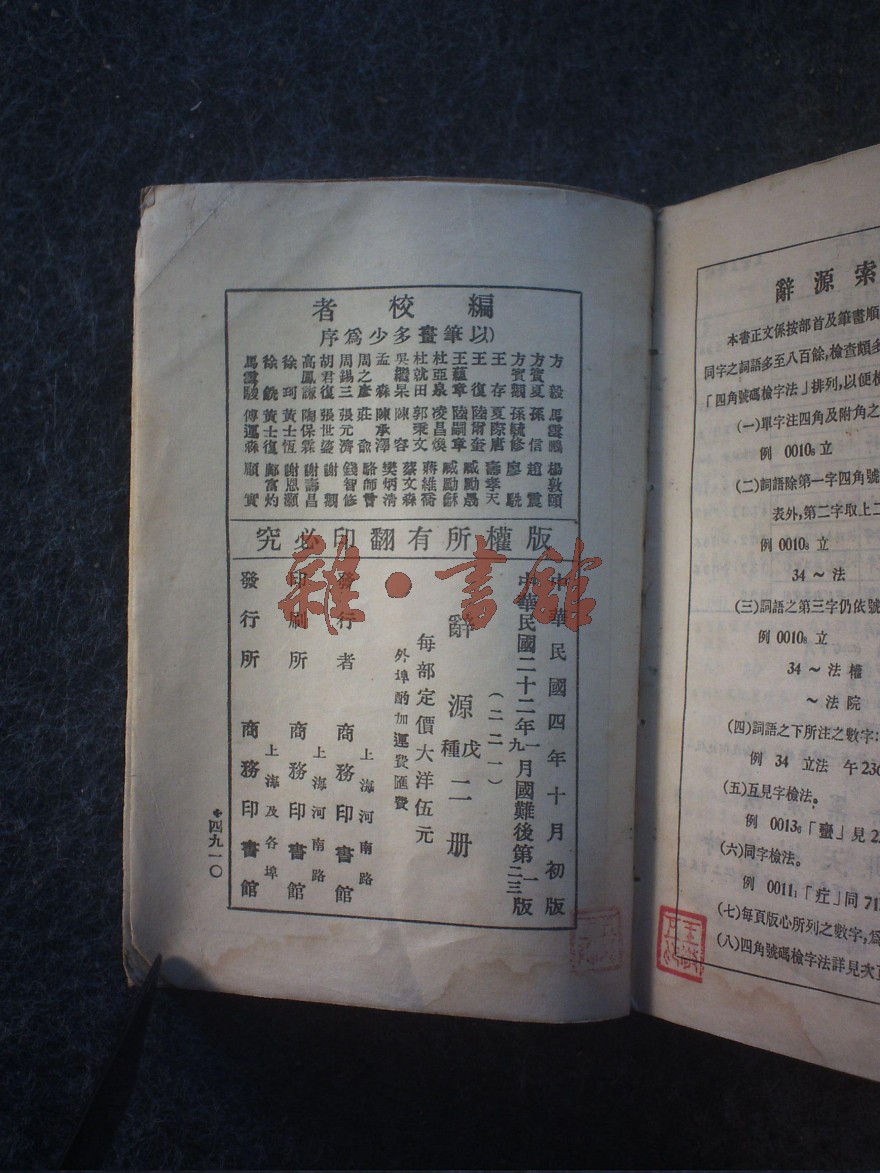 編校者
（以筆畫多少爲序
方毅 馬瀛鵬 楊敦頤
方賓夏 孫信 趙震
方賓觀 孫毓修 廖
王存 夏際唐 壽孝天
王復 陸爾奎 臧勵勗
王蘊章 陸嗣章 臧勵龢
杜亞泉 凌昌煥 蔣維喬
杜就田 郭秉文 蔡文森
吳繼杲 陳容 樊炳清
孟森 陳承澤 駱師曾
周之彥 莊俞 錢智修
周錫三 張元濟 謝觀
胡君復 張世鎏 謝壽昌
高鳳謙 陶保霖 謝恩灝
徐珂 黃士恆 鄺富灼
徐銑 黃士復 顧實
馬 傅運森
版權所有翻印必究
中華民國四年十月初版
中華民國二十二年一九月國難後第一二三版
（二二一）
辭源戊種二册
每部定價大洋伍元
外埠酌加運費匯費
上海河南路
發行者 商務印書館
上海河南路
印刷所 商務印書館
上海及各埠
發行所 商務印書館
四九一〇
雜·書館
辭源索
本書正文係按部首及筆畫順
同字之詞語多至八百餘,檢查頗多
「四角號碼檢字法」排列,以便檢
(一)單字注四角及附角之
例 0010₈ 立
(二)詞語除第一字四角號
表外,第二字取上二
例 0010₈ 立
34 ～ 法
(三)詞語之第三字仍依號
例 0010₈ 立
34 ～ 法 權
～ 法 院
(四)詞語之下所注之數字:
例 34 立法 午236
(五)互見字檢法。
例 0013₆「蠱」見2
(六)同字檢法。
例 0011₁「症」同71
(七)每頁版心所列之數字,爲
(八)四角號碼檢字法詳見次頁